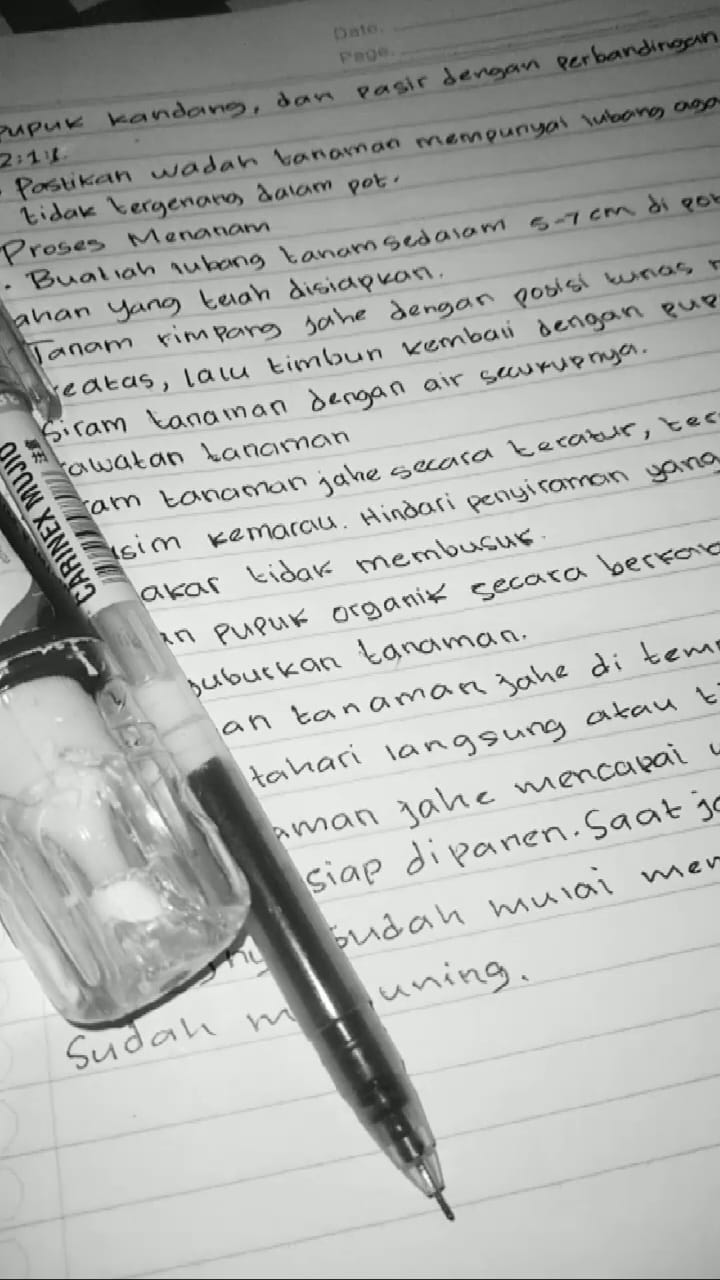 Date.
Page.
pupuk kandang, dan pasir dengan perbandingan
2:1:1.
Pastikan wadah tanaman mempunyai lubang aga
tidak tergenang dalam pot.
Proses Menanam
• Buatlah lubang tanam sedalam 5-7 cm di
ahan yang telah disiapkan.
Tanam rimpang jahe dengan posisi tunas
eatas, lalu timbun kembali dengan pup
Siram tanaman dengan air secukupnya.
awatan tanaman
ram tanaman jahe secara teratur, ter
usim kemarau. Hindari penyiraman yang
akar tidak membusuk.
an pupuk organik secara berkala
uburkan tanaman.
an tanaman jahe di temp
tahari langsung atau
aman jahe mencapai
siap dipanen. Saat
sudah mulai men
Sudah m uning.
CARINEX MUJIO